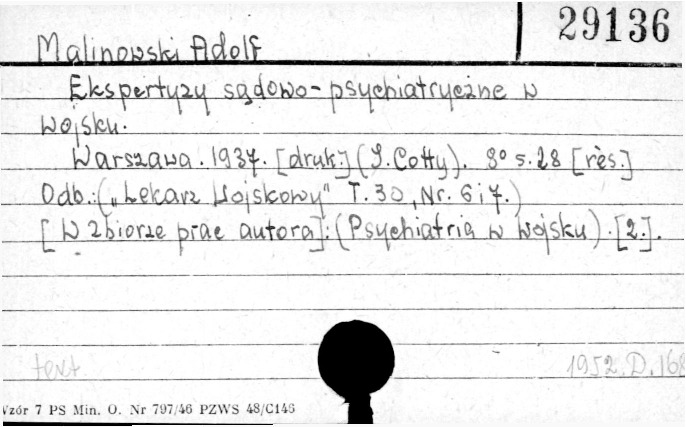 29136
Malinowski Adolf
Ekspertyzy sądowo-psychiatryczne w
wojsku.
Warszawa. 1937. [druk] (J. Cotty). 8° s. 28 [rés.]
Odb.: („Lekarz Wojskowy" T. 30, Nr. 6 i 7.)
[W zbiorze prac autora]: (Psychiatria w wojsku). [2.].
text
1952.D.168
Wzór 7 PS Min. O. Nr 797/46 PZWS 48/C146